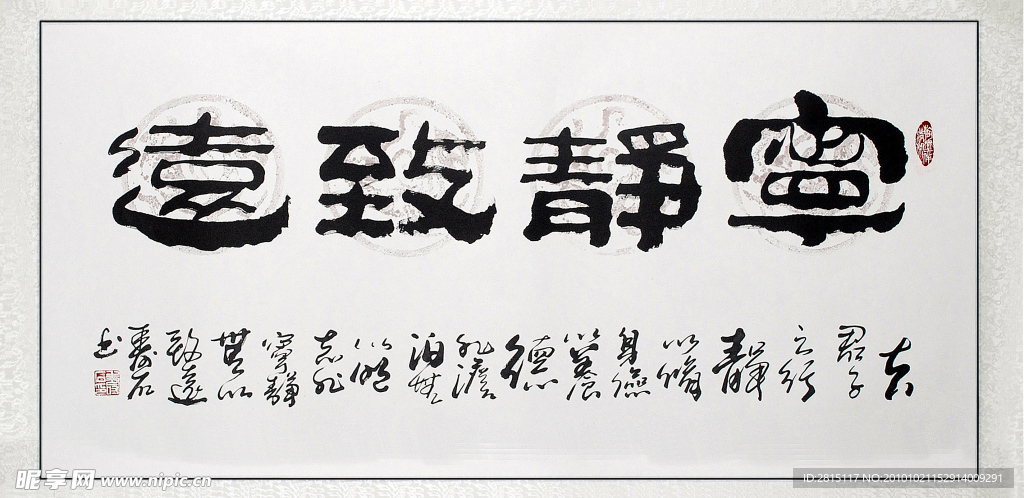 寧靜致遠
夫
君子
之行
靜
以脩
身儉
以養
德
非澹
泊無
以明
志非
寧靜
無以
致遠
壽石
书
昵享网 www.nipic.cn
ID:2815117 NO:20101021152914009291